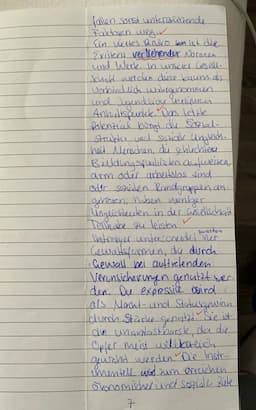 fallen sonst unterstützende
Faktoren weg.
Ein viertes Risiko ist die
Existenz verstehender Normen
und Werte. In unserer Gesell-
schaft werden diese kaum als
verbindlich wahrgenommen
und Jugendliche verlieren
Anhaltspunkte. Das letzte
Potential birgt die Sozial-
struktur und soziale Ungleich-
heit. Menschen, die schlechtere
Bildungsqualitäten aufweisen,
arm oder arbeitslos sind
oder sozialen Randgruppen an-
gehören, haben weniger
Möglichkeiten in der Gesellschaft
Teilhabe zu leisten.
Heitmeyer unterscheidet vier
Gewaltformen, die durch
Gewalt bei auftretenden
Verunsicherungen genutzt wer-
den. Die expressive wird
als Macht- und Statusgewinn
durch Stärke genutzt. Sie ist
die unantastbarste, da die
Opfer meist willkürlich
gesucht werden. Die Instr-
umentelle wird zum erreichen
ökonomischer und sozialer Ziele
7